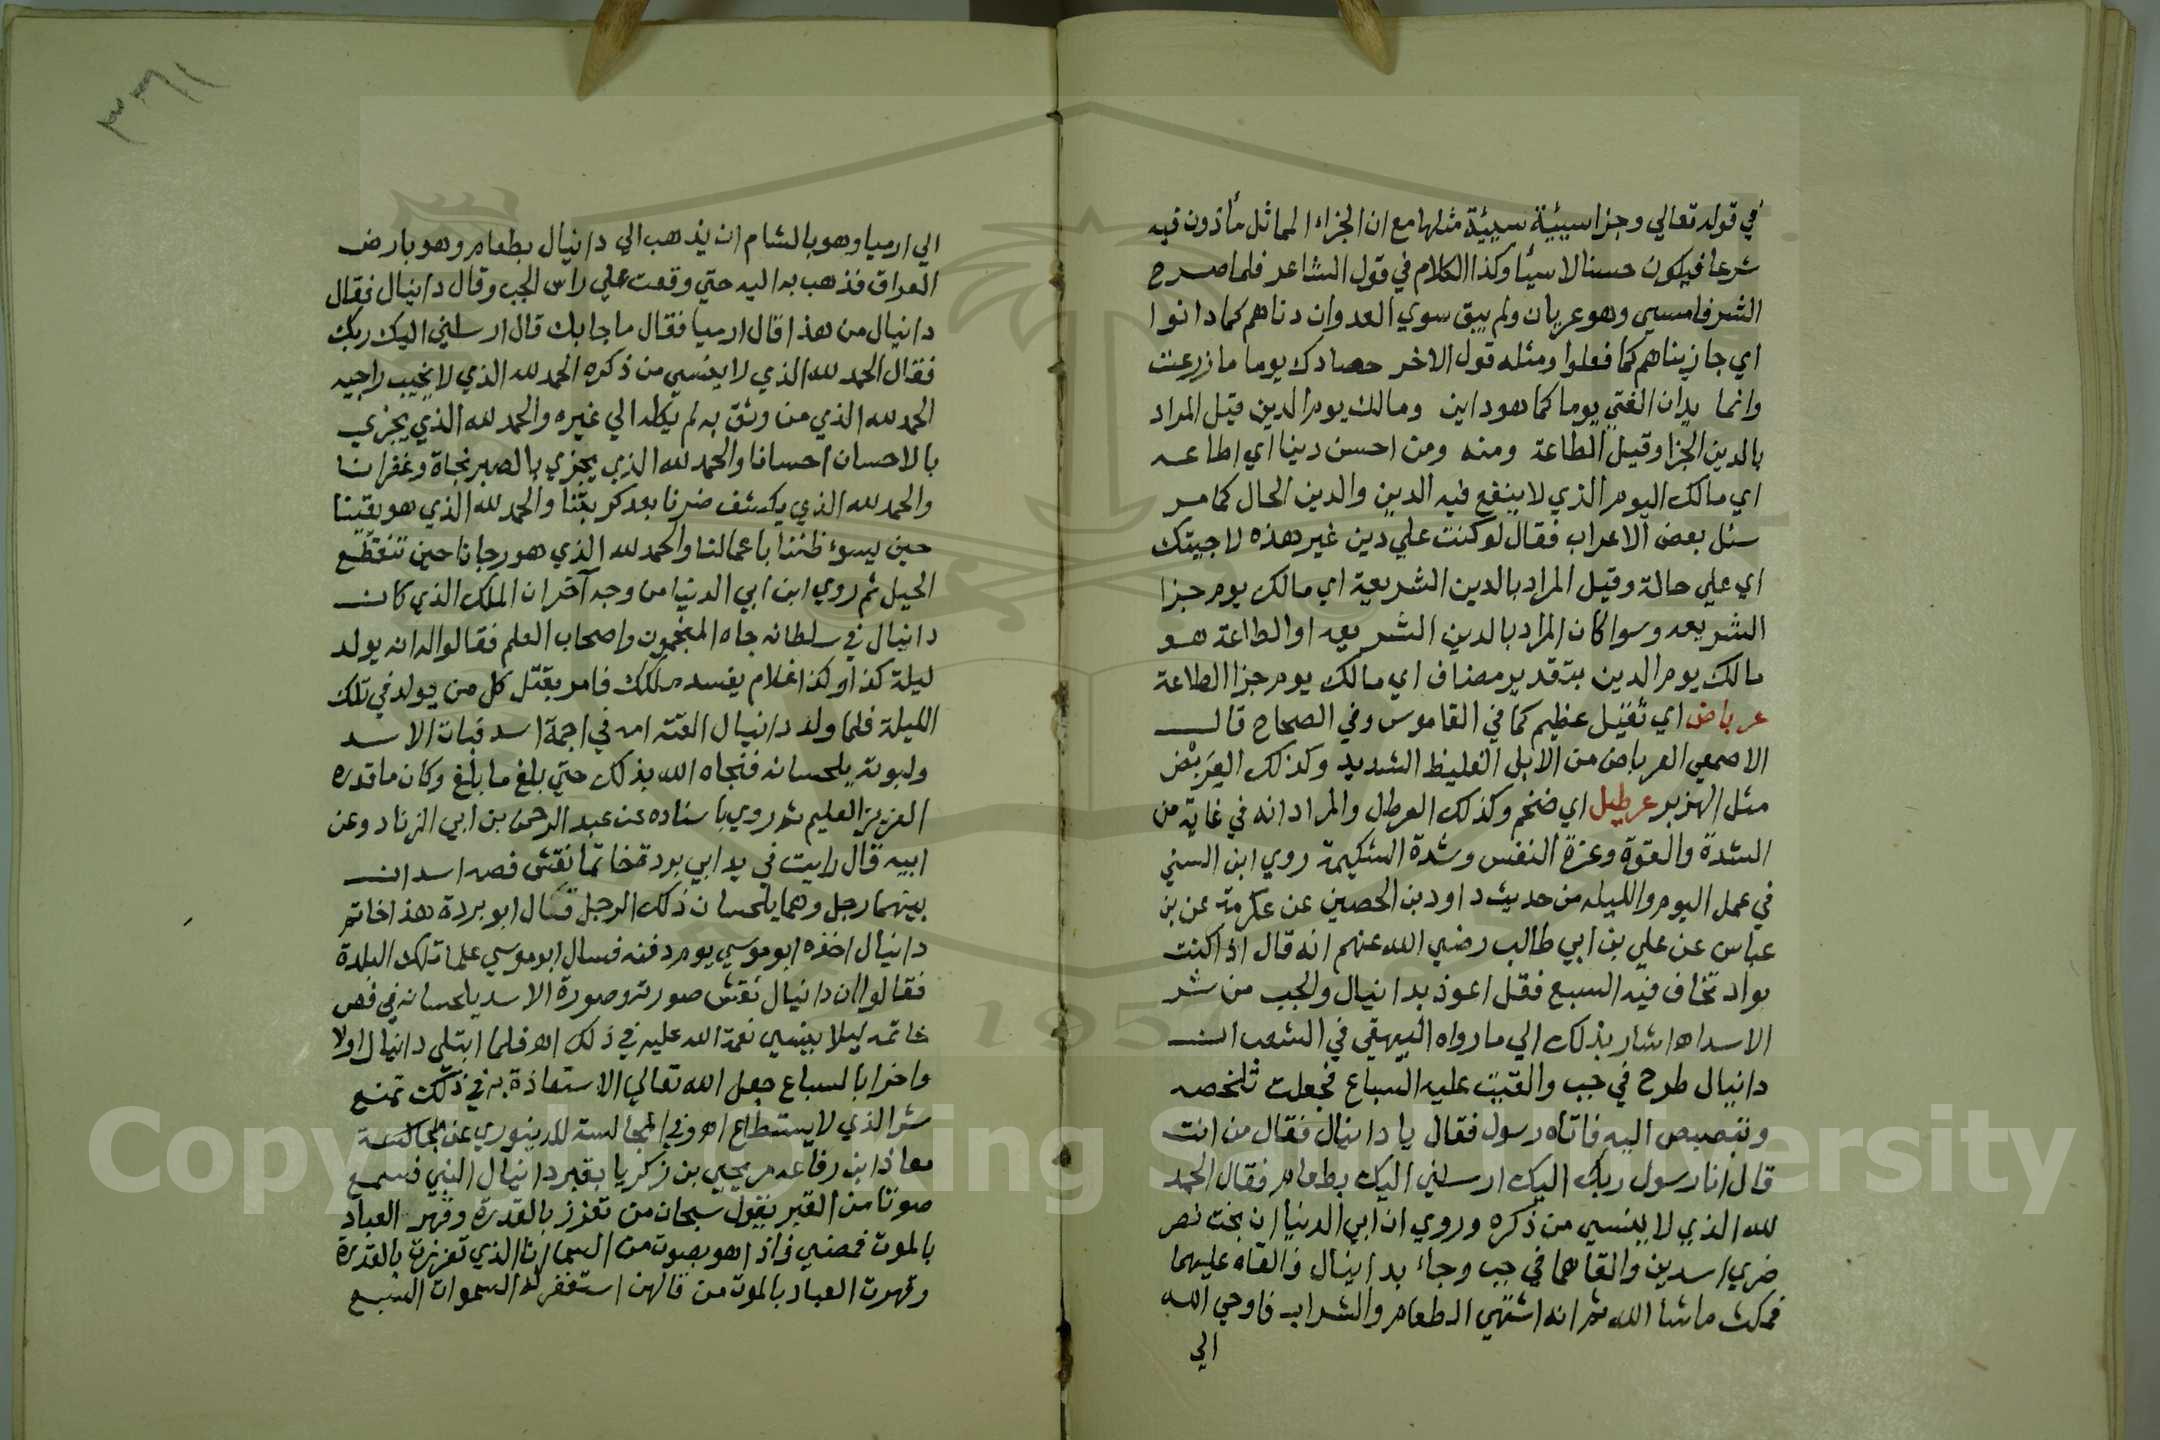 في قوله تعالي وجزا سيئة سيئة مثلها مع ان الجزاء المماثل مأذون فيه
شرعا فيكون حسنا لا سيأ وكذا الكلام في قول الشاعر فلما صرح
الشر فامسي وهو عريان ولم يبق سوي العدوان دناهم كما دانوا
اي جازيناهم كما فعلوا ومثله قول الاخر حصادك يوما ما زرعت
وانما يدان الفتي يوما كما هو داين ومالك يوم الدين قيل المراد
بالدين الجزا وقيل الطاعة ومنه ومن احسن دينا اي اطاعه
اي مالك اليوم الذي لا ينفع فيه الدين والدين الحال كما مر
سئل بعض الاعراب فقال لو كنت علي دين غير هذه لاجبتك
اي علي حالة وقيل المراد بالدين الشريعة اي مالك يوم جزا
الشريعه وسوا كان المراد بالدين الشريعه او الطاعة هو
مالك يوم الدين بتقدير مضاف اي مالك يوم جزا الطاعة
عرباض اي ثقيل عظيم كما في القاموس وفي الصحاح قال
الاصمعي العرباض من الابل الغليظ الشديد وكذلك العِرَبْض
مثل الهزبر عرطيل اي ضخم وكذلك العرطل والمراد انه في غاية من
الشدة والقوة وعزة النفس وشدة الشكيمة روي ابن السني
في عمل اليوم والليله من حديث داود بن الحصين عن عكرمة عن بن
عباس عن علي بن ابي طالب رضي الله عنهم انه قال اذا كنت
بواد تخاف فيه السبع فقل اعوذ بدانيال والجب من شر
الاسد اه اشار بذلك الي ما رواه البيهقي في الشعب ان
دانيال طرح في جب والقيت عليه السباع فجعلت تلحسه
وتبصبص اليه فاتاه رسول فقال يا دانيال فقال من انت
قال انا رسول ربك اليك ارسلني اليك بطعام فقال الحمد
لله الذي لا ينسي من ذكره وروي ابن ابي الدنيا ان بخت نصر
ضري اسدين والقاهما في جب وجاء بدانيال فالقاه عليهما
فمكث ما شا الله ثم انه اشتهي الطعام والشراب فاوحي الله
الي
٣٣٦١
الي ارميا وهو بالشام ان يذهب الي دانيال بطعام وهو بارض
العراق فذهب به اليه حتي وقعت علي راس الجب وقال دانيال فقال
دانيال من هذا قال ارميا فقال ما جابك قال ارسلني اليك ربك
فقال الحمد لله الذي لا ينسي من ذكره الحمد لله الذي لا يخيب راجيه
الحمد لله الذي من وثق به لم يكله الي غيره والحمد لله الذي يجزي
بالاحسان احسانا والحمد لله الذي يجزي بالصبر نجاة وغفرانا
والحمد لله الذي يكشف ضرنا بعد كربتنا والحمد لله الذي هو يقيننا
حين يسوء ظننا باعمالنا والحمد لله الذي هو رجانا حين تنقطع
الحيل ثم روي ابن ابي الدنيا من وجه آخر ان الملك الذي كان
دانيال في سلطانه جاه المنجمون واصحاب العلم فقالوا له انه يولد
ليلة كذا وكذا غلام يفسد ملكك فامر بقتل كل من يولد في تلك
الليلة فلما ولد دانيال القته امه في اجمة اسد فبات الاسد
ولبوته يلحسانه فنجاه الله بذلك حتي بلغ ما بلغ وكان ما قدره
العزيز العليم ثم روي باسناده عن عبد الرحمن بن ابي الزناد وعن
ابيه قال رايت في يد ابي بردة خاتما نقش فصه اسدان
بينهما رجل وهما يلحسان ذلك الرجل قال ابو بردة هذا خاتم
دانيال اخذه ابو موسي يوم دفنه فسال ابو موسي علما تلك البلدة
فقالوا ان دانيال نقش صورته وصورة الاسد يلحسانه في فص
خاتمه ليلا ينسي نعمة الله عليه في ذلك اه فلما ابتلي دانيال اولا
واخرا بالسباع جعل الله تعالي الاستعاذة به في ذلك تمنع
شر الذي لا يستطاع اه وفي المجالسة للدينوري عن
معاذ ابن رفاعه مر يحيي بن زكريا بقبر دانيال النبي فسمع
صوتا من القبر يقول سبحان من تعزز بالقدرة وقهر العباد
بالموت فمضي فاذا هو بصوت من السما انا الذي تعززت بالقدرة
وقهرت العباد بالموت من قالهن استغفر له السموات السبع
Copyright © King Saud University
1957